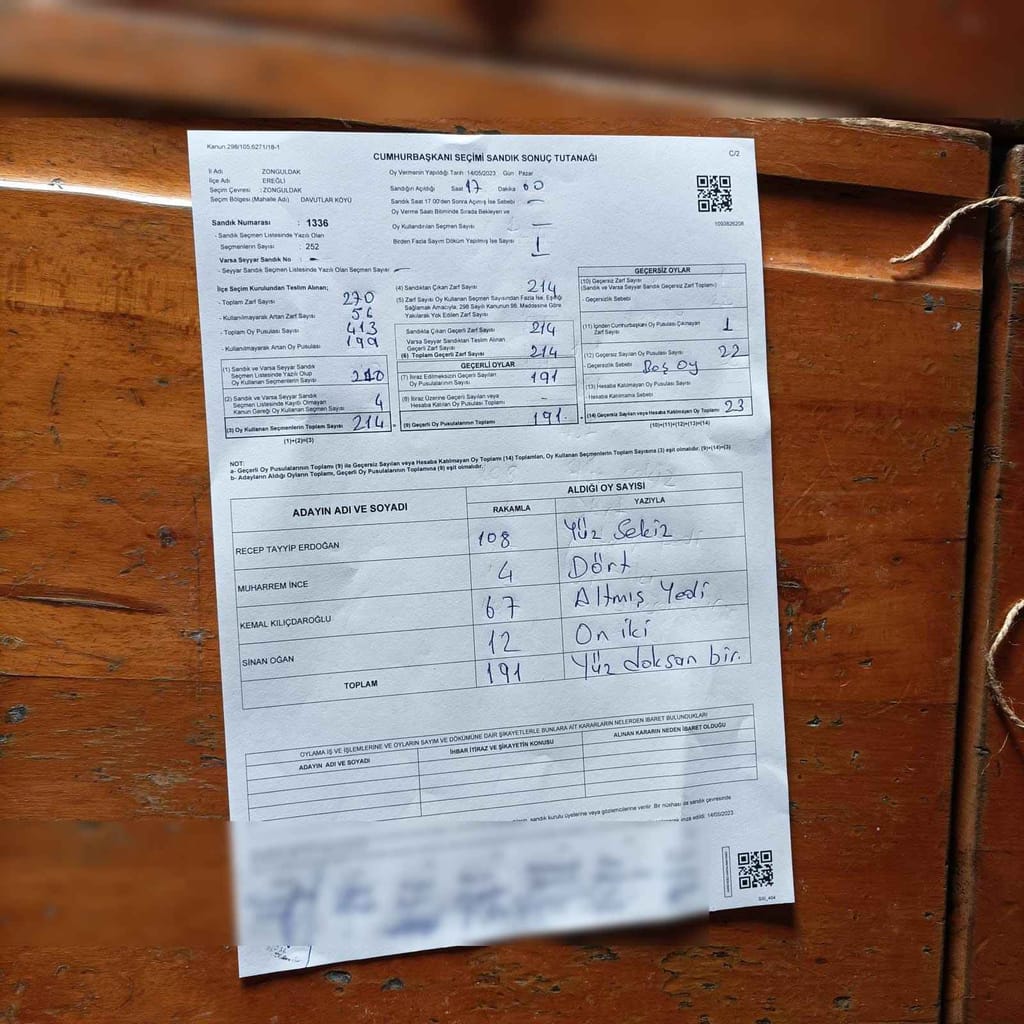 Kanun:298/105,6271/18-1
C/2
CUMHURBAŞKANI SEÇİMİ SANDIK SONUÇ TUTANAĞI
İl Adı ZONGULDAK
İlçe Adı EREĞLİ
Seçim Çevresi : ZONGULDAK
Seçim Bölgesi (Mahalle Adı) DAVUTLAR KÖYÜ
Oy Vermenin Yapıldığı Tarih :14/05/2023 Gün : Pazar
Sandığın Açıldığı Saat 17 Dakika 00
Sandık Saat 17.00'den Sonra Açılmış İse Sebebi –
Oy Verme Saati Bitiminde Sırada Bekleyen ve
Oy Kullandırılan Seçmen Sayısı –
Birden Fazla Sayım Döküm Yapılmış İse Sayısı 1
1093826208
Sandık Numarası : 1336
- Sandık Seçmen Listesinde Yazılı Olan
Seçmenlerin Sayısı : 252
Varsa Seyyar Sandık No : –
- Seyyar Sandık Seçmen Listesinde Yazılı Olan Seçmen Sayısı –
İlçe Seçim Kurulundan Teslim Alınan;
- Toplam Zarf Sayısı 270
- Kullanılmayarak Artan Zarf Sayısı 56
- Toplam Oy Pusulası Sayısı 413
- Kullanılmayarak Artan Oy Pusulası 199
(1) Sandık ve Varsa Seyyar Sandık
Seçmen Listesinde Yazılı Olup
Oy Kullanan Seçmenlerin Sayısı 210
(2) Sandık ve Varsa Seyyar Sandık
Seçmen Listesinde Kayıtlı Olmayan
Kanun Gereği Oy Kullanan Seçmen Sayısı 4
(3) Oy Kullanan Seçmenlerin Toplam Sayısı 214
(1)+(2)=(3)
(4) Sandıktan Çıkan Zarf Sayısı 214
(5) Zarf Sayısı Oy Kullanan Seçmen Sayısından Fazla İse, Eşitliği
Sağlamak Amacıyla, 298 Sayılı Kanunun 98. Maddesine Göre
Yakılarak Yok Edilen Zarf Sayısı
Sandıkta Çıkan Geçerli Zarf Sayısı 214
Varsa Seyyar Sandıktan Teslim Alınan
Geçerli Zarf Sayısı
(6) Toplam Geçerli Zarf Sayısı 214
GEÇERLİ OYLAR
(7) İtiraz Edilmeksizin Geçerli Sayılan
Oy Pusulalarının Sayısı 191
(8) İtiraz Üzerine Geçerli Sayılan veya
Hesaba Katılan Oy Pusulası Toplamı -
(9) Geçerli Oy Pusulalarının Toplamı 191.
GEÇERSİZ OYLAR
(10) Geçersiz Zarf Sayısı
(Sandık ve Varsa Seyyar Sandık Geçersiz Zarf Toplamı)
- Geçersizlik Sebebi
(11) İçinden Cumhurbaşkanı Oy Pusulası Çıkmayan
Zarf Sayısı 1
(12) Geçersiz Sayılan Oy Pusulası Sayısı 22
- Geçersizlik Sebebi Boş oy
(13) Hesaba Katılmayan Oy Pusulası Sayısı
- Hesaba Katılmama Sebebi
(14) Geçersiz Sayılan veya Hesaba Katılmayan Oy Toplamı 23
(10)+(11)+(12)+(13)=(14)
NOT:
a- Geçerli Oy Pusulalarının Toplamı (9) ile Geçersiz Sayılan veya Hesaba Katılmayan Oy Toplamı (14) Toplamları, Oy Kullanan Seçmenlerin Toplam Sayısına (3) eşit olmalıdır. (9)+(14)=(3)
b- Adayların Aldığı Oyların Toplamı, Geçerli Oy Pusulalarının Toplamına (9) eşit olmalıdır.
ADAYIN ADI VE SOYADI
ALDIĞI OY SAYISI
RAKAMLA YAZIYLA
RECEP TAYYİP ERDOĞAN 108 Yüz Sekiz
MUHARREM İNCE 4 Dört
KEMAL KILIÇDAROĞLU 67 Altmış Yedi
SİNAN OĞAN 12 On iki
TOPLAM 191 Yüz doksan bir.
OYLAMA İŞ VE İŞLEMLERİNE VE OYLARIN SAYIM VE DÖKÜMÜNE DAİR ŞİKAYETLERLE BUNLARA AİT KARARLARIN NELERDEN İBARET BULUNDUKLARI
ADAYIN ADI VE SOYADI
İHBAR İTİRAZ VE ŞİKAYETİN KONUSU
ALINAN KARARIN NEDEN İBARET OLDUĞU
sandık kurulu üyelerine veya gözlemcilerine verilir. Bir nüshası da sandık çevresinde
imza edildi. 14/05/2023